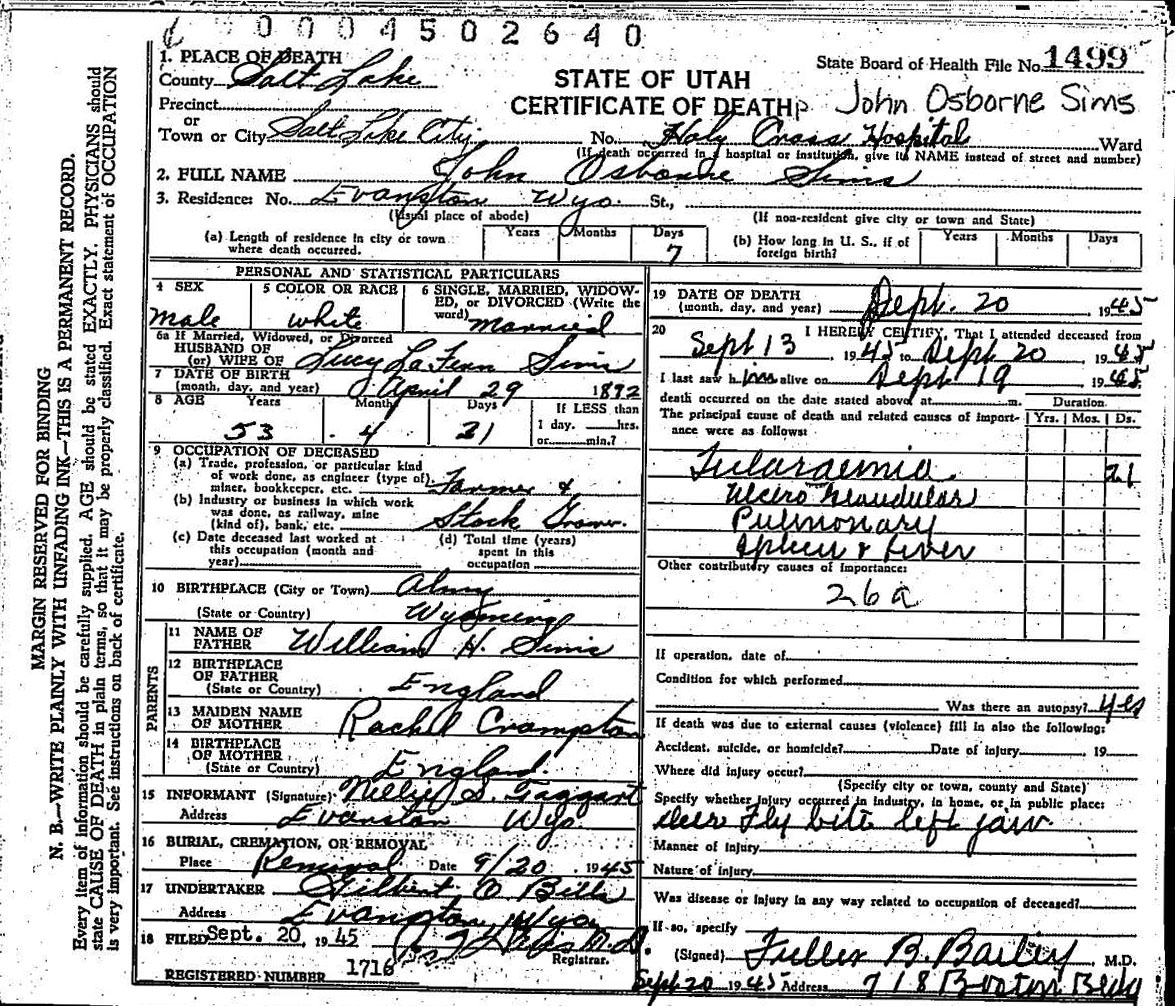 0004502640
State Board of Health File No. 1499
STATE OF UTAH
CERTIFICATE OF DEATH
John Osborne Sims
1. PLACE OF DEATH
County Salt Lake
Precinct
or
Town or City Salt Lake City No. Holy Cross Hospital Ward
(If death occurred in a hospital or institution, give its NAME instead of street and number)
2. FULL NAME John Osborne Sims
3. Residence: No. Evanston Wyo. St.,
(Usual place of abode) (If non-resident give city or town and State)
(a) Length of residence in city or town where death occurred. Years Months Days 7
(b) How long in U. S., if of foreign birth? Years Months Days
PERSONAL AND STATISTICAL PARTICULARS
4 SEX male
5 COLOR OR RACE white
6 SINGLE, MARRIED, WIDOWED, or DIVORCED (Write the word) married
6a If Married, Widowed, or Divorced
HUSBAND OF
(or) WIFE OF Lucy LaFern Sims
7 DATE OF BIRTH
(month, day, and year) April 29 1892
8 AGE Years Months Days If LESS than
53 4 21 1 day. hrs.
or min.?
9 OCCUPATION OF DECEASED
(a) Trade, profession, or particular kind
of work done, as engineer (type of),
miner, bookkeeper, etc. Farmer &
(b) Industry or business in which work
was done, as railway, mine
(kind of), bank, etc. Stock Grower.
(c) Date deceased last worked at
this occupation (month and
year)
(d) Total time (years)
spent in this
occupation
10 BIRTHPLACE (City or Town) Almy
(State or Country) Wyoming
PARENTS
11 NAME OF
FATHER William H. Sims
12 BIRTHPLACE
OF FATHER
(State or Country) England
13 MAIDEN NAME
OF MOTHER Rachel Crompton
14 BIRTHPLACE
OF MOTHER
(State or Country) England.
15 INFORMANT (Signature) Nellie S. Taggart
Address Evanston Wyo.
16 BURIAL, CREMATION, OR REMOVAL
Place Removal Date 9/20 1945
17 UNDERTAKER Gilbert O Bills
Address Evanston, Wyo
18 FILED Sept. 20, 1945
Registrar.
REGISTERED NUMBER 1716
19 DATE OF DEATH
(month, day, and year) Sept. 20 1945
20 I HEREBY CERTIFY, That I attended deceased from
Sept 13 1945 to Sept 20 1945
I last saw him alive on Sept 19 1945
death occurred on the date stated above, at m. Duration
The principal cause of death and related causes of importance were as follows: Yrs. Mos. Ds.
Tularaemia 21
Ulcero Glandular
Pulmonary
Spleen & Liver
Other contributory causes of importance:
26a
If operation, date of
Condition for which performed
Was there an autopsy? yes
If death was due to external causes (violence) fill in also the following:
Accident, suicide, or homicide? Date of injury 19
Where did injury occur?
(Specify city or town, county and State)
Specify whether injury occurred in industry, in home, or in public place:
deer Fly bite left jaw.
Manner of injury
Nature of injury
Was disease or injury in any way related to occupation of deceased?
If so, specify
(Signed) Fuller B. Bailey, M.D.
Sept 20 1945 Address 718 Boston Bldg
MARGIN RESERVED FOR BINDING
N. B.—WRITE PLAINLY WITH UNFADING INK—THIS IS A PERMANENT RECORD.
Every item of information should be carefully supplied. AGE should be stated EXACTLY. PHYSICIANS should
state CAUSE OF DEATH in plain terms, so that it may be properly classified. Exact statement of OCCUPATION
is very important. See instructions on back of certificate.